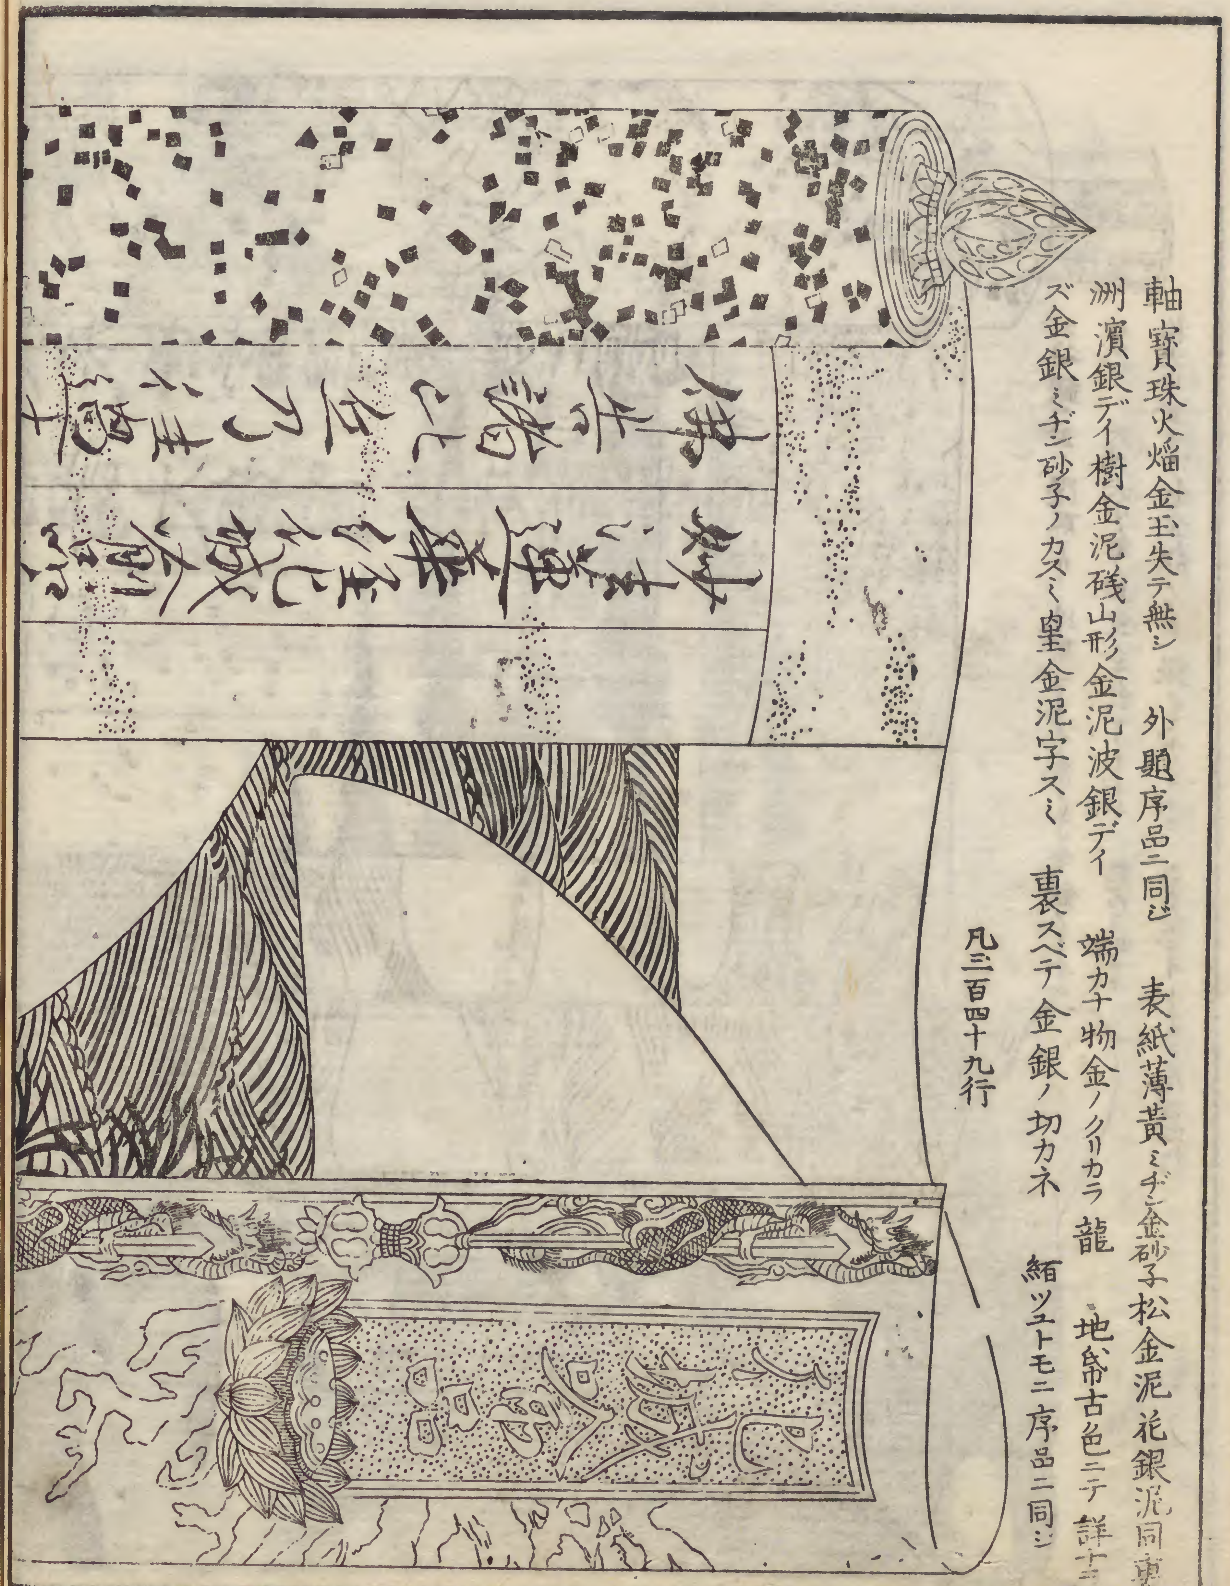 軸寳珠火焔金玉失テ無シ 外題序品ニ同ジ 表紙薄黄ミヂン金砂子松金泥花銀泥同
洲濱銀デイ樹金泥磯山形金泥波銀デイ 端カナ物金ノクリカラ龍 地帋古色ニテ詳
ズ金銀ミヂン砂子ノカスミ 金泥字スミ 裏スベテ金銀ノ切カネ 紐ツユトモニ序品ニ同ジ
凡三百四十九行
妙法蓮華經化城喩
佛告諸比丘乃往
化城喩品